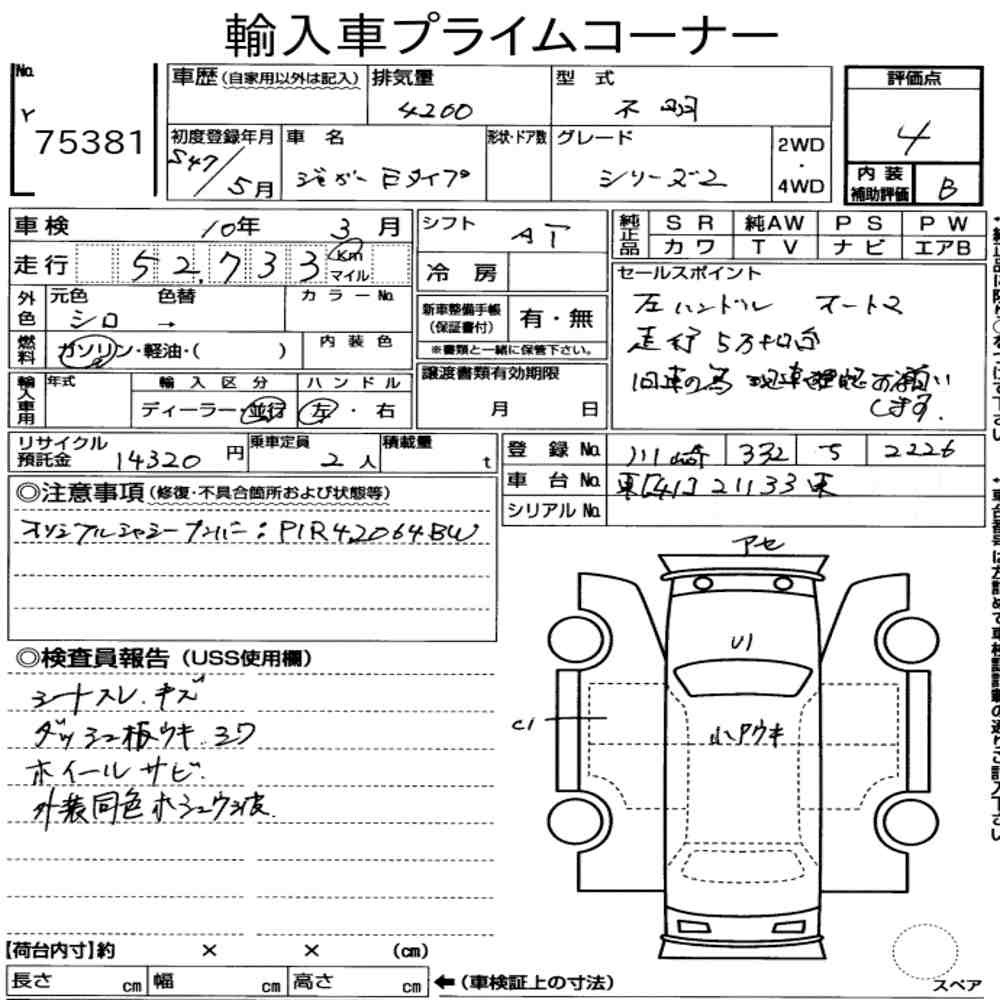 輸入車プライムコーナー
No.
Y
75381
車歴 (自家用以外は記入)
排気量
4200
型式
不明
評価点
4
初度登録年月
S47/5月
車名
ジャガー Eタイプ
形状・ドア数
グレード
シリーズ2
2WD
・
4WD
内装
補助評価
B
車検 10年 3月
シフト
AT
純正品
SR 純AW PS PW
カワ TV ナビ エアB
走行 52,733 Km
マイル
冷房
セールスポイント
左ハンドル オートマ
走行5万キロ台
旧車の為 現車確認お願い
します.
外色
元色
シロ
色替
→
カラーNo.
新車整備手帳
(保証書付)
有・無
※書類と一緒に保管下さい。
燃料
ガソリン・軽油・( )
内装色
輸入車用
年式
輸入区分
ディーラー・並行
ハンドル
左・右
譲渡書類有効期限
月 日
リサイクル
預託金
14320円
乗車定員
2人
積載量
t
登録No. 川崎 332 ち 2226
車台No. 東[41]21133東
シリアルNo.
◎注意事項 (修復・不具合箇所および状態等)
オリジナルシャシーナンバー:P1R42064BW
◎検査員報告 (USS使用欄)
シートスレ.キズ
ダッシュ板ウキ.シワ
ホイールサビ.
外装同色ホシュウ、波.
アセ
U1
C1
小Pウキ
【荷台内寸】約 × × (cm)
長さ cm 幅 cm 高さ cm ←(車検証上の寸法)
スペア